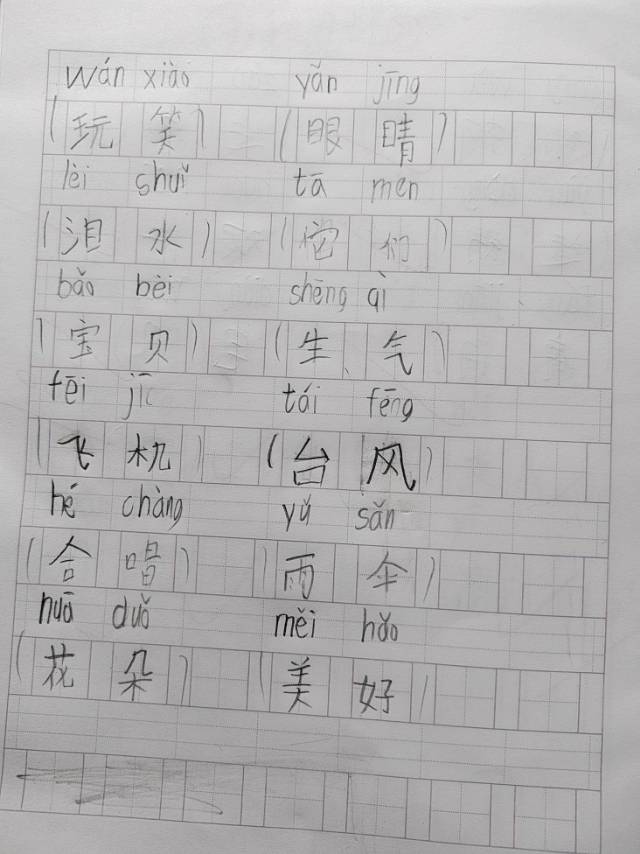 wán xiào yǎn jīng
(玩笑) (眼睛)
lèi shuǐ tā men
(泪水) (它们)
bǎo bèi shēng qì
(宝贝) (生、气)
fēi jī tái fēng
(飞机) (台风)
hé chàng yǔ sǎn
(合唱) (雨伞)
huā duǒ měi hǎo
(花朵) (美好)